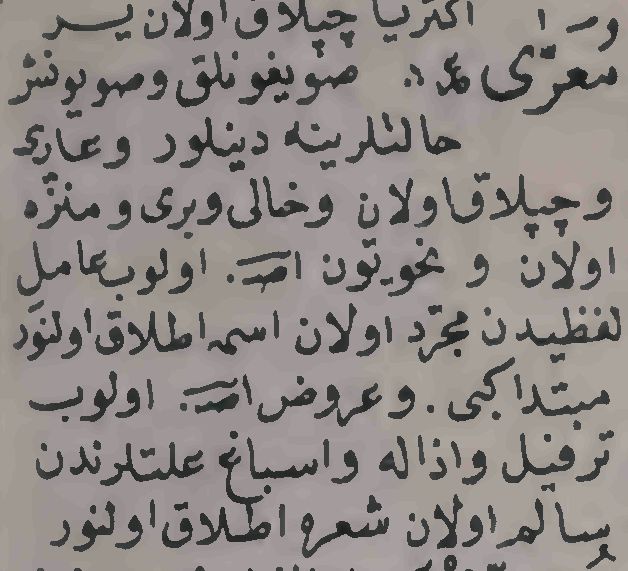 اكثريا چپلاق اولان یـــر
معرّى صويغونلق وصويونمش
حالتلرينه دينلور وعارى
وچپلاق اولان وخالى وبرى ومنزّه
اولان ونحويون اصــ اولوب عامل
لفظيدن مجرّد اولان اسمه اطلاق اولنور
مبتدا كبى . وعروض اصــ اولوب
ترفيل واذاله واسباغ علتلرندن
سالم اولان شعره اطلاق اولنور